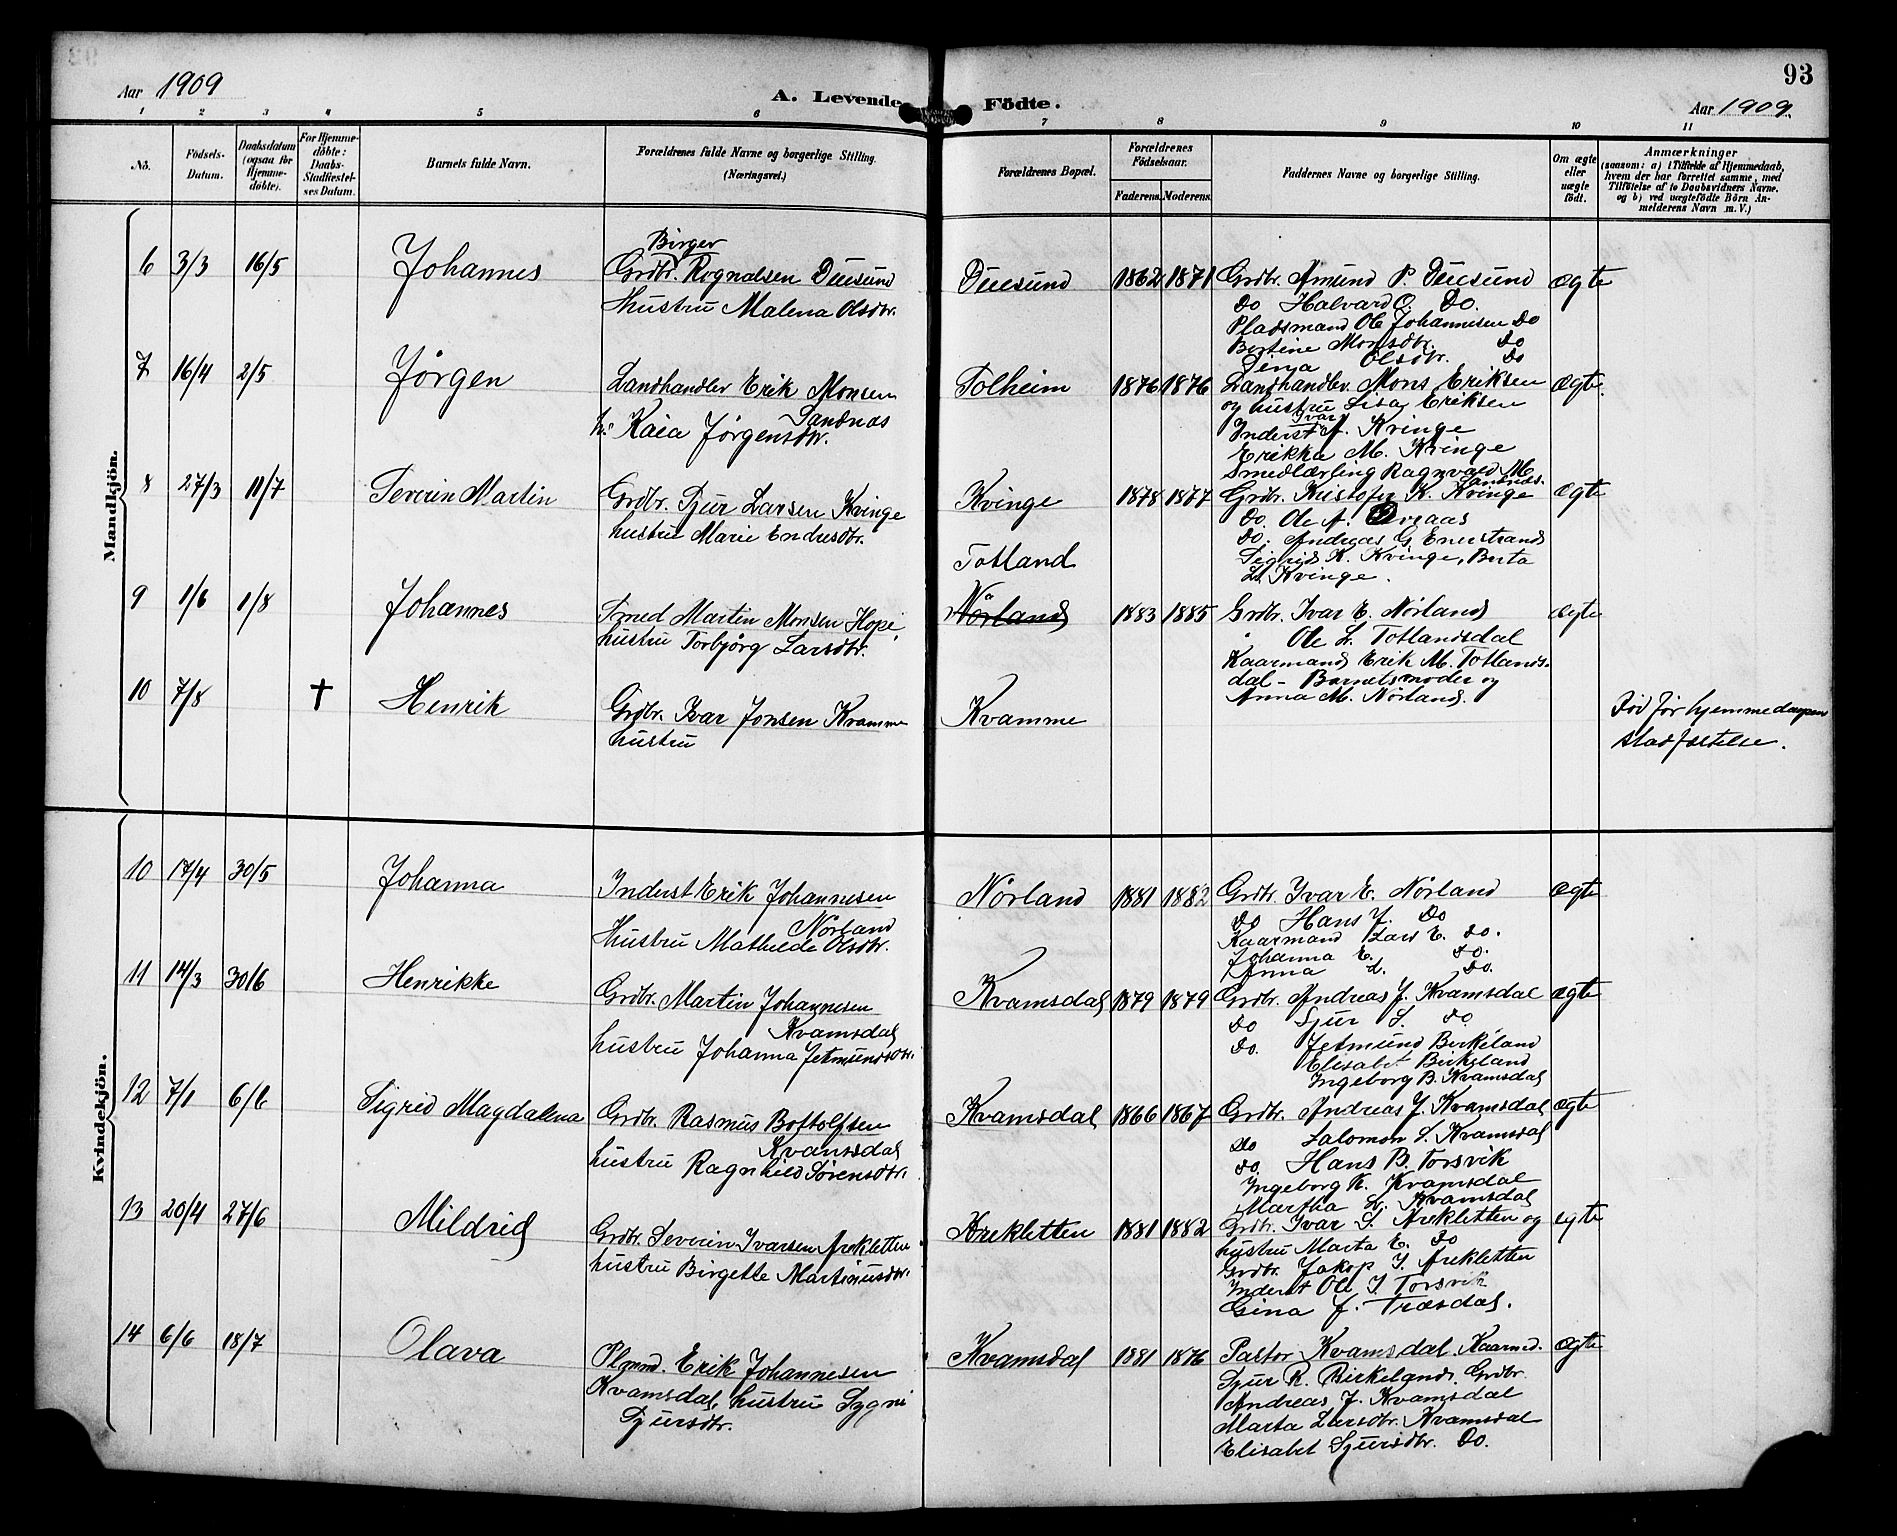 93
Aar 1909
A. Levende Födte.
Aar 1909.
1 2 3 4 5 6 7 8 9 10 11
No.
Födsels-Datum.
Daabsdatum (ogsaa for Hjemme-döbte).
For Hjemme-döbte: Daabs-Stadfæstel-ses Datum.
Barnets fulde Navn.
Forældrenes fulde Navne og borgerlige Stilling. (Næringsvei.)
Forældrenes Bopæl.
Forældrenes Födselsaar.
Faderens. Moderens.
Faddernes Navne og borgerlige Stilling.
Om ægte eller uægte födt.
Anmærkninger
(saasom: a) i Tilfælde af Hjemmedaab,
hvem der har forrettet samme, med
Tilföielse af to Daabsvidners Navne.
og b) ved uægtefödte Börn An-
melderens Navn m. V.)
Mandkjön.
6 3/3 16/5 Johannes
Birger
Grdbr. Rognalsen Duesund
Hustru Malena Olsdtr.
Duesund 1862 1871
Grdbr. Amund P. Duesund
Do Halvard O. Do.
Pladsmand Ole Johannesen Do
Bertine Monsdtr. Do
Olsdtr. Do
ægte
7 16/4 2/5 Jörgen
Landhandler Erik Monsen
Sandnæs
h: Kaia Jörgensdtr.
Solheim 1876 1876
Landhandler Mons Eriksen
og hustru Lisa Eriksen
Inderst Ivar A. Kvinge
Erikka M. Kvinge
Smedlærling Ragnvald M.
Sandnes.
ægte.
8 27/3 11/7 Severin Martin
Grdbr. Sjur Larsen Kvinge
hustru Marie Endresdtr.
Kvinge 1878 1877
Grdbr. Kristofer K. Kvinge
Do. Ole A.
Do. Andreas G. Enerstrand
Sigrid K. Kvinge, Berta
L. Kvinge.
ægte
9 1/6 1/8 Johannes
Smed Martin Monsen Hope,
hustru Torbjörg Larsdtr.
Totland
Nörland 1883 1885
Grdbr. Ivar E. Nörland
" Ole L. Totlandsdal
Kaarmand Erik M. Totlands-
dal - Barnets moder og
Anna M. Nörland.
ægte
10 7/8 † Henrik
Grdbr. Ivar Jonsen Kvamme
hustru
Kvamme
Död för hjemmedaapens
stadfæstelse.
Kvindekjön.
10 17/4 30/5 Johanna
Inderst Erik Johannesen
Nörland
Hustru Mathilde Olsdtr.
Nörland 1881 1882
Grdbr. Ivar E. Nörland
Do Hans J. Do
Kaarmand Lars E. Do.
Johanna E. Do.
Anna L. Do.
ægte
11 14/3 30/6 Henrikke
Grdbr. Martin Johannesen
Kvamsdal
hustru Johanna Jetmundsdtr.
Kvamsdal 1879 1879
Grdbr. Andreas J. Kvamsdal
Do Sjur S. Do
Do. Jetmund Birkeland
Elisabet Birkeland
Ingeborg B. Kvamsdal
ægte
12 7/1 6/6 Sigrid Magdalena
Grdbr. Rasmus Bottolfsen
Kvamsdal
hustru Ragnhild Sörensdtr.
Kvamsdal 1866 1867
Grdbr. Andreas J. Kvamsdal
Do Salomon S. Kvamsdal
Do. Hans B. Torsvik
Ingeborg R. Kvamsdal
Martha H. Kvamsdal
ægte
13 20/4 27/6 Mildrid
Grdbr. Severin Ivarsen Arekletten
hustru Birgette Martinusdtr.
Arekletten 1881 1882
Grdbr. Ivar S. Arekletten og
hustru Marta E. Do
Grdbr. Jakop I. Arekletten
Inderst Ole I. Torsvik
Gina J. Træsdal.
egte
14 6/6 18/7 Olava
Plgmd. Erik Johannesen
Kvamsdal, hustru Sygni
Sjursdtr.
Kvamsdal 1881 1876
Pastor Kvamsdal. Kaarmd.
Sjur R. Birkeland. Grdbr.
Andreas J. Kvamsdal
Marta Larsdtr. Kvamsdal
Elisabet Sjursdtr. Do.
ægte